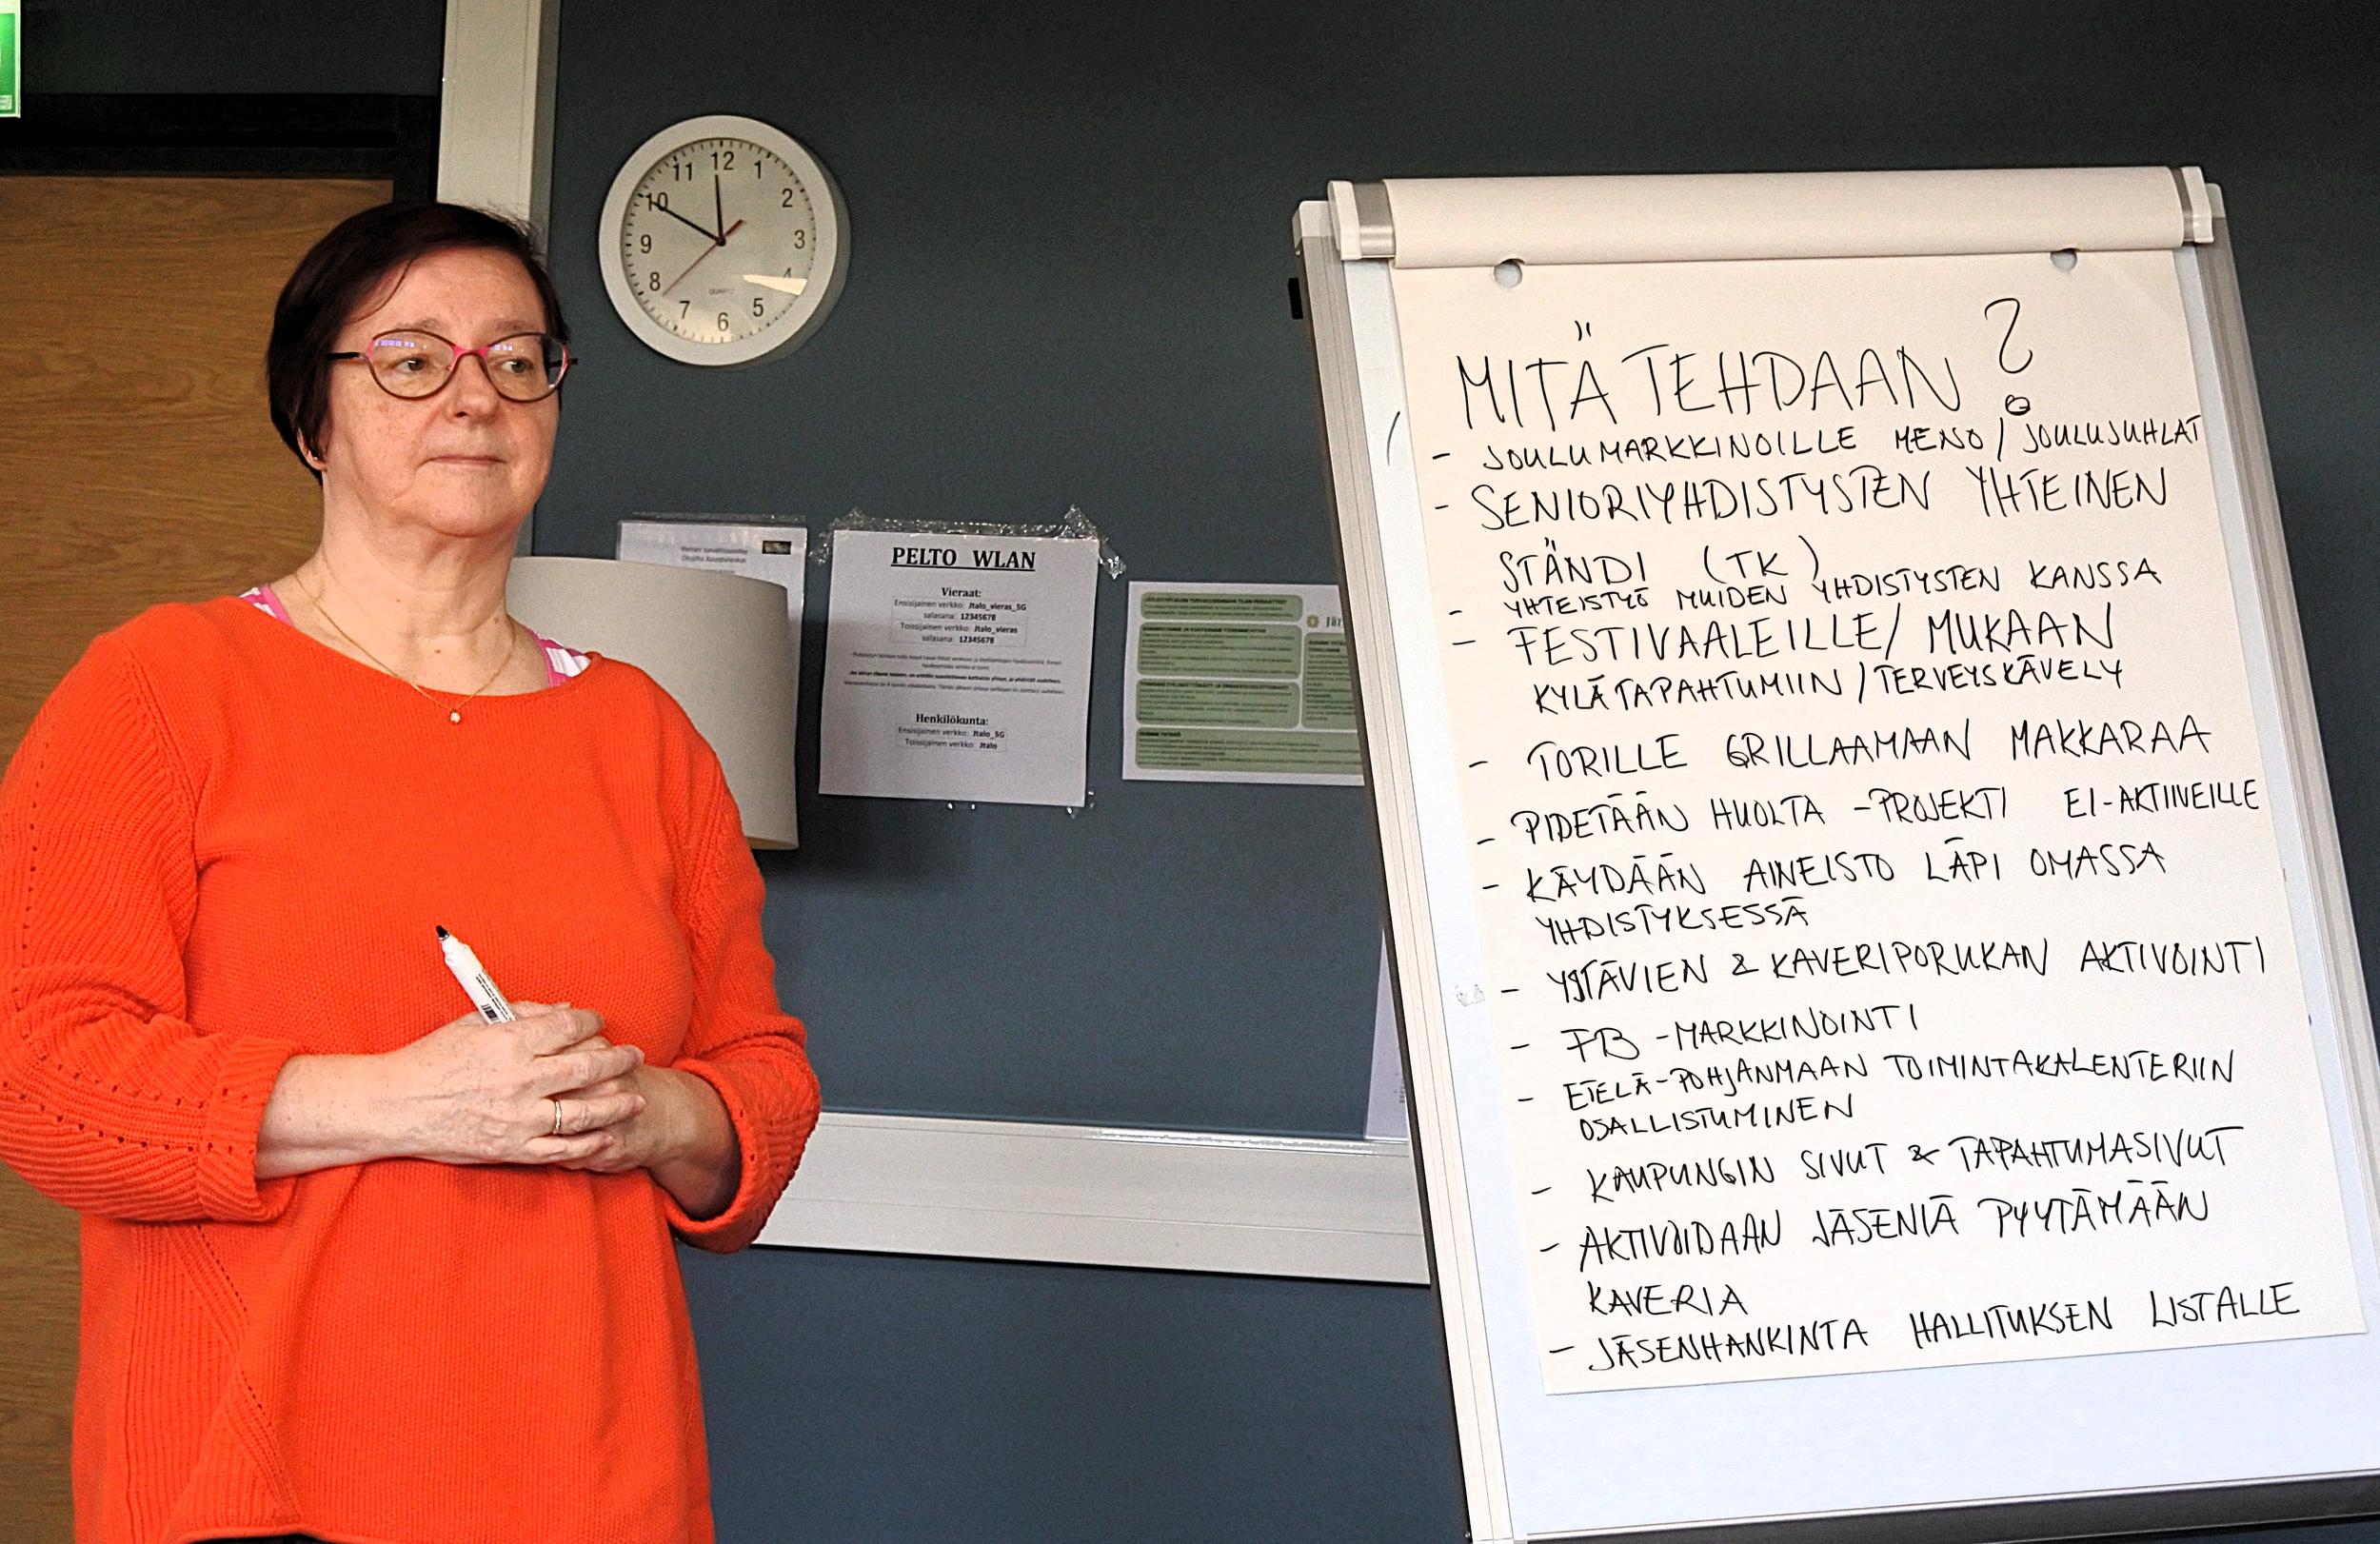 12
1
2
3
4
5
6
7
8
9
10
11
QUARTZ
PELTO WLAN
Vieraat:
Ensisijainen verkko: Jtalo_vieras_5G
salasana: 12345678
Toissijainen verkko: Jtalo_vieras
salasana: 12345678
Henkilökunta:
Ensisijainen verkko: Jtalo_5G
Toissijainen verkko: Jtalo
MITÄ TEHDAAN?
- JOULUMARKKINOILLE MENO / JOULUJUHLAT
- SENIORIYHDISTYSTEN YHTEINEN
STÄNDI (TK)
- YHTEISTYÖ MUIDEN YHDISTYSTEN KANSSA
- FESTIVAALEILLE / MUKAAN
KYLÄTAPAHTUMIIN / TERVEYSKÄVELY
- TORILLE GRILLAAMAAN MAKKARAA
- PIDETÄÄN HUOLTA -PROJEKTI EI-AKTIIVEILLE
- KÄYDÄÄN AINEISTO LÄPI OMASSA
YHDISTYKSESSÄ
- YSTÄVIEN & KAVERIPORUKAN AKTIVOINTI
- FB -MARKKINOINTI
- ETELÄ-POHJANMAAN TOIMINTAKALENTERIIN
OSALLISTUMINEN
- KAUPUNGIN SIVUT & TAPAHTUMASIVUT
- AKTIVOIDAAN JÄSENIÄ PYYTÄMÄÄN
KAVERIA
- JÄSENHANKINTA HALLITUKSEN LISTALLE